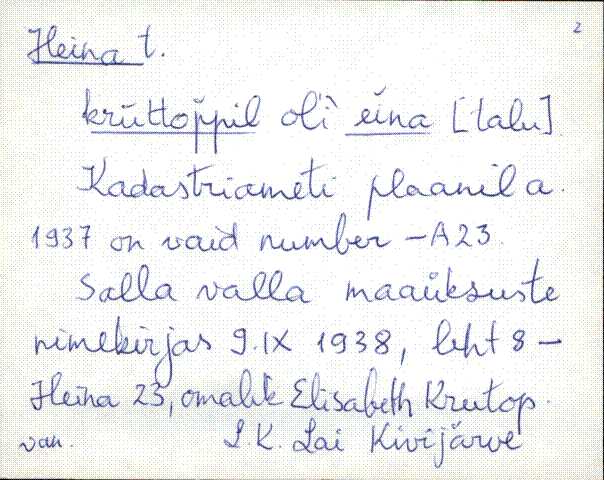 2
Heina t.
krüttop̆pil oli ĕina [talu].
Kadastriameti plaanil a.
1937 on vaid number – A 23.
Salla valla maaüksuste
nimekirjas 9.IX 1938, leht 8 –
Heina 23, omanik Elisabeth Krutop.
van. L.K. Lai Kivijärve